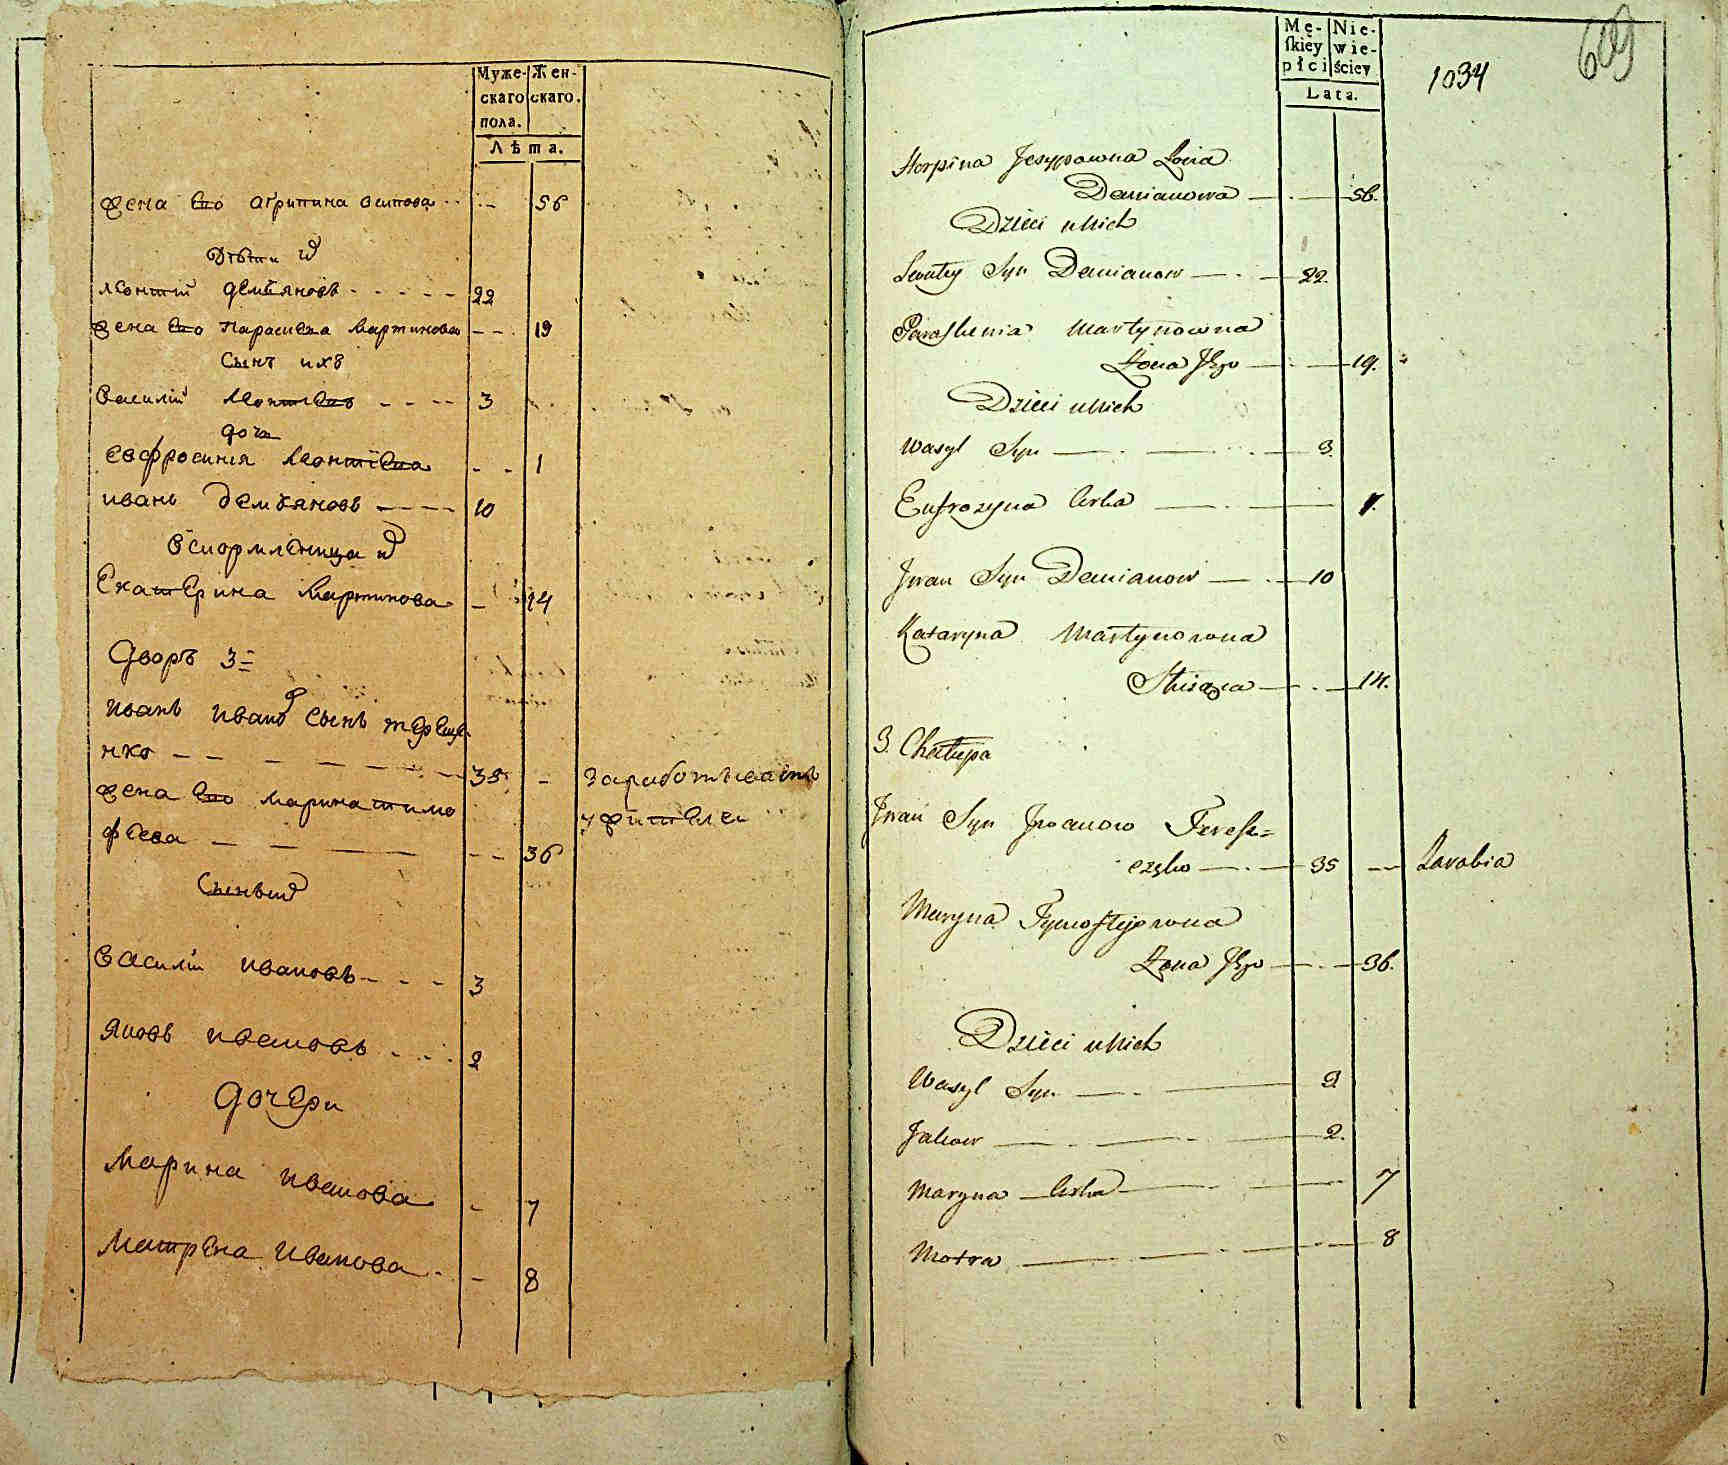 Муже-
скаго
пола.
Жен-
скаго.
Лѣта.
жена Его агрипина осипова 56
Дѣти
леонтий демьяновъ 22
жена Его Парасиева Мартинова 19
Сынъ ихъ
Василий Леонтиевъ 3
дочь
Евфросиния Леонтиева 1
иванъ демьяновъ 10
вскормленица
Екатерина Мартинова 14
Дворъ 3
иванъ иванов сынъ тереще
нко 35 заработываетъ
жена Его марина тимо у жителей
феева 36
Сыновья
Василий ивановъ 3
Яковъ ивановъ 2
Дочери
Марина иванова 7
Матрена иванова 8
Mę-
skiey
płci
Nie-
wie-
ściey
Lata.
1034
609
Horpina Jesypowna Żona
Demianowa 56.
Dzieci u Nich
Leontey Syn Demianow 22.
Paraskewia Martynowna
Żona Jego 19.
Dzieci u Nich
Wasyl Syn 3.
Eufrozyna Corka 1.
Jwan Syn Demianow 10
Kataryna Martynowna
Sługa 14.
3. Chałupa
Jwan Syn Jwanow Teresz=
częko 35 Zarabia
Maryna Tymoftejowna
Żona Jego 36.
Dzieci u Nich
Wasyl Syn 3
Jakow 2.
Maryna Corka 7
Motra 8